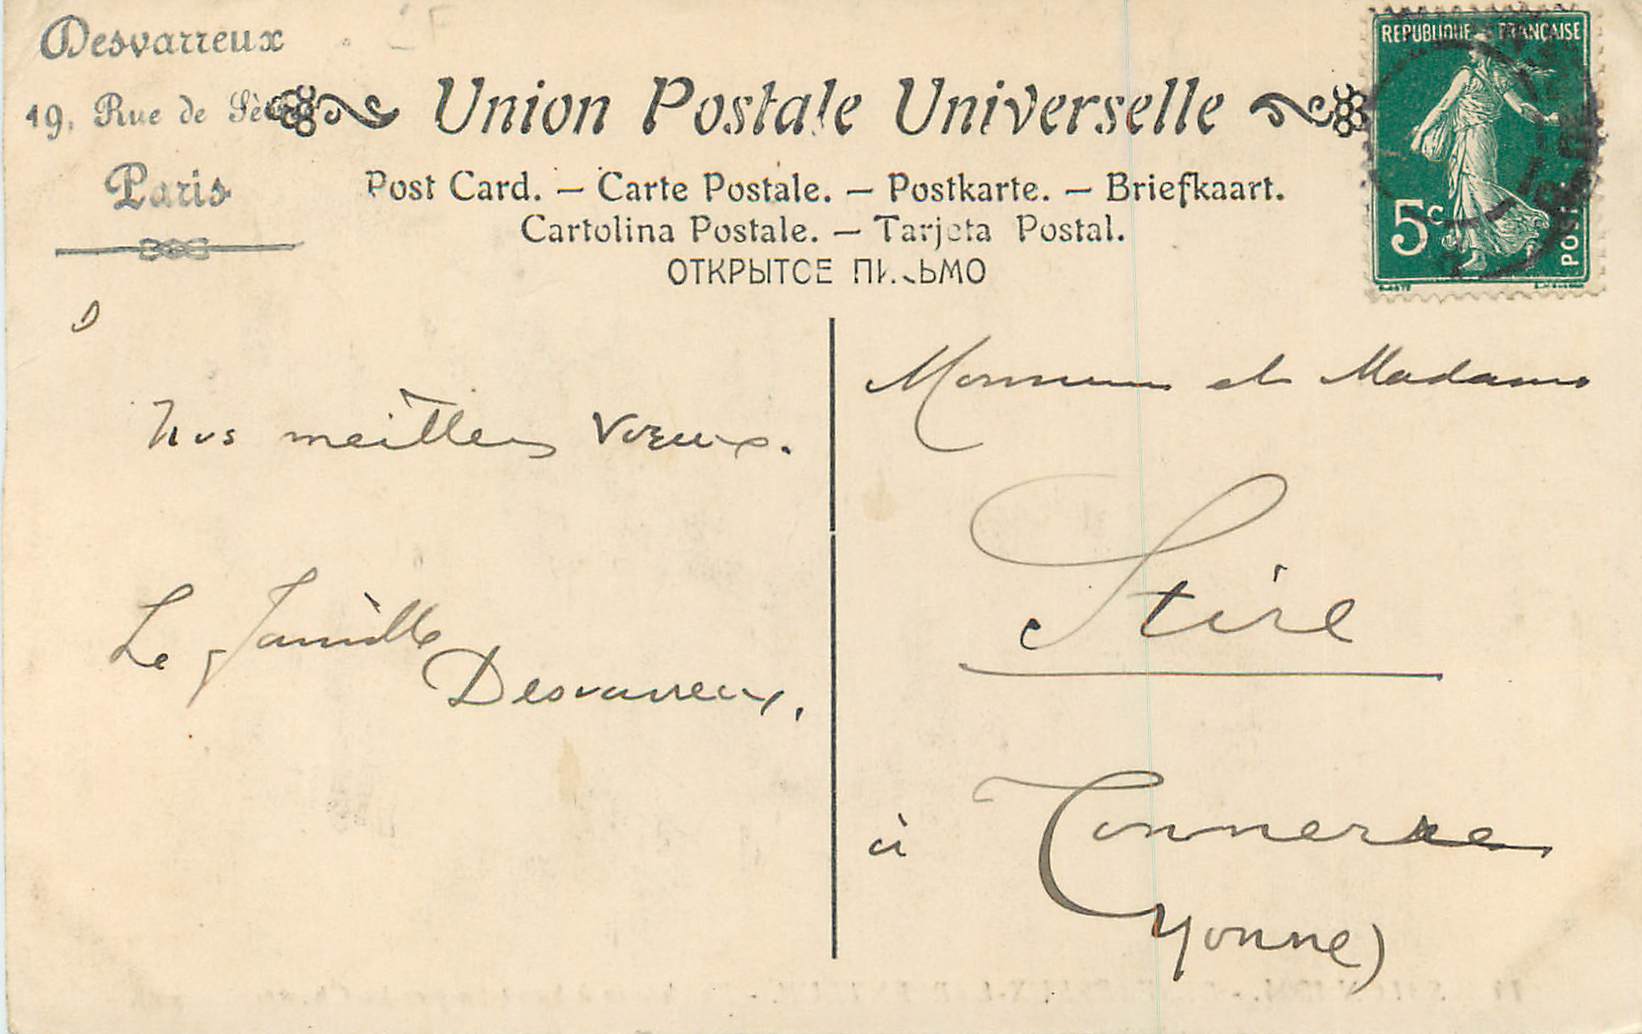 Desvarreux
19, Rue de Sèvres
Paris
Union Postale Universelle
Post Card. — Carte Postale. — Postkarte. — Briefkaart.
Cartolina Postale. — Tarjeta Postal.
ОТКРЫТСЕ ПИСЬМО
REPUBLIQUE FRANÇAISE
5c
POSTES
Nos meilleurs vœux.
La famille
Desvarreux.
Monsieur et Madame
Stire
à Tonnerre
(Yonne)